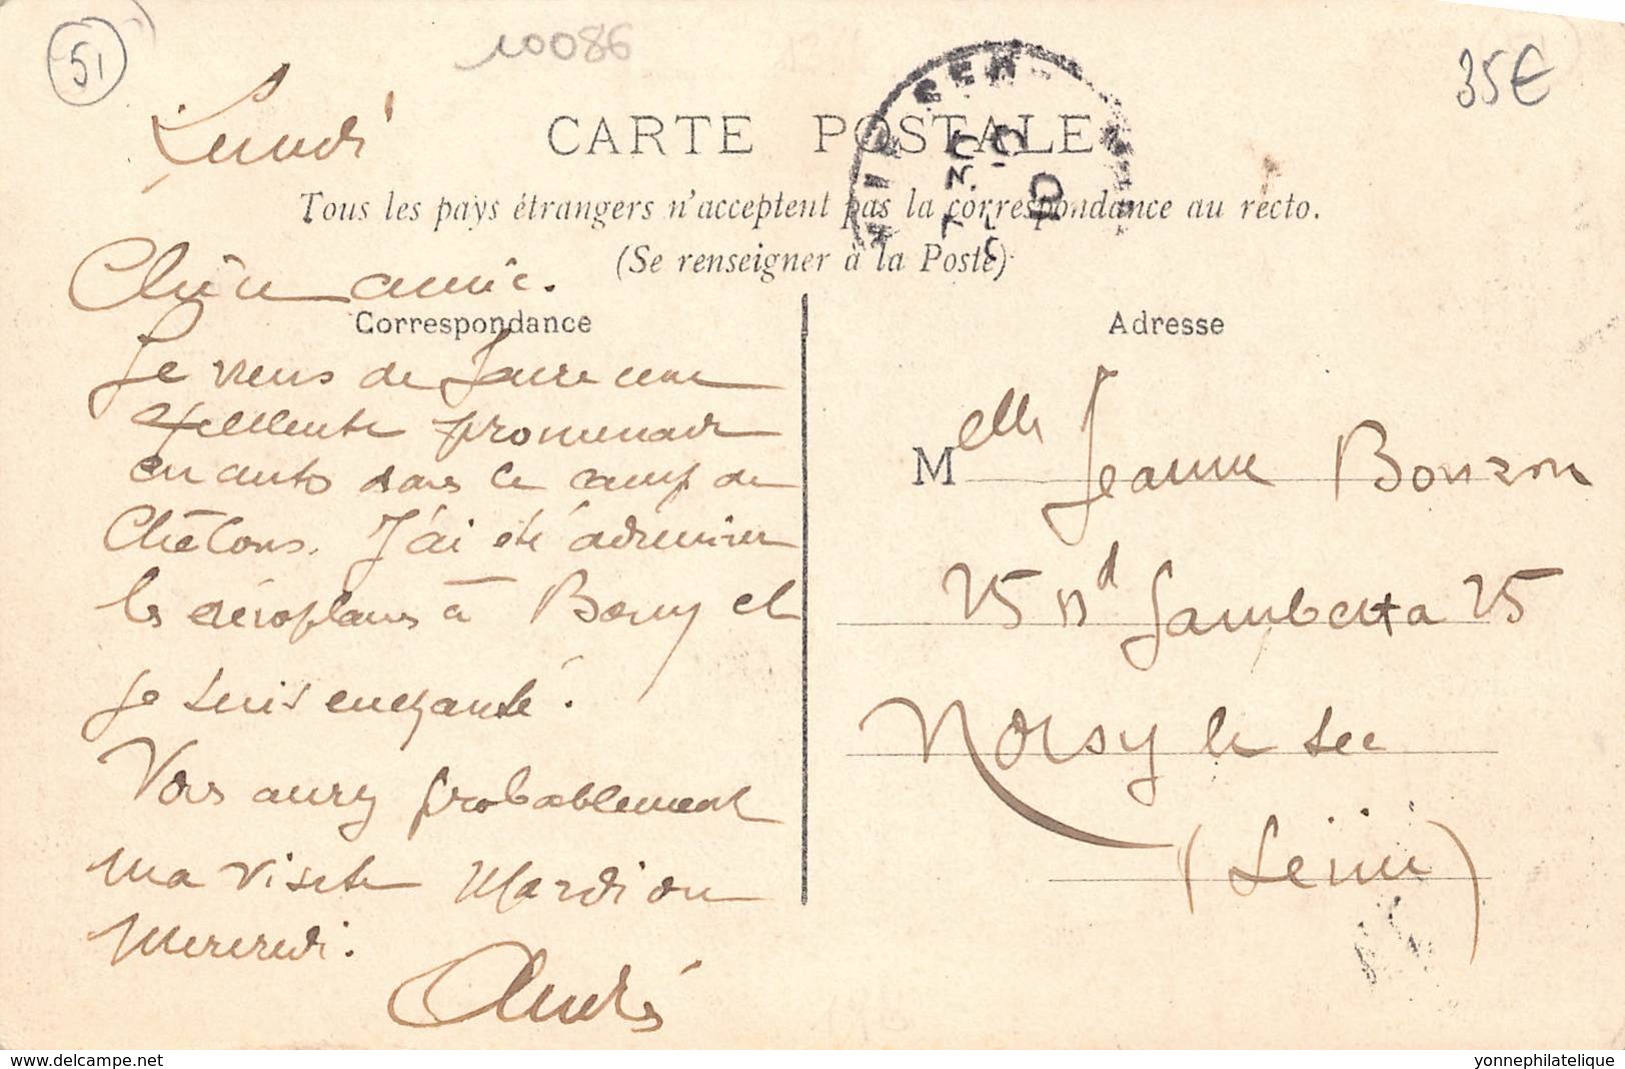 51
10086
35€
Lundi
CARTE POSTALE
Tous les pays étrangers n'acceptent pas la correspondance au recto.
(Se renseigner à la Poste)
Chère amie.
Correspondance
Je viens de faire une
excellente promenade
en auto dans le camp de
Châlons. J'ai été admirer
les aéroplanes à Bouy et
je suis enchanté.
Vous aurez probablement
ma visite Mardi ou
Mercredi.
André
Adresse
Melle Jeanne Bonzon
25 Bd Gambetta 25
Noisy le Sec
(Seine)
delcampe.net
yonnephilatelique